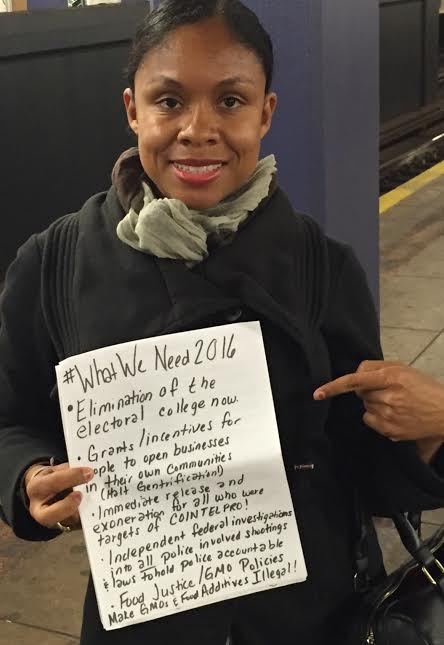 #What We Need 2016
• Elimination of the
electoral college now.
• Grants/incentives for
ople to open businesses
in their own Communities
(Halt Gentrification!)
• Immediate release and
exoneration for all who were
targets of COINTELPRO!
• Independent federal investigations
into all Police involved shootings
& laws to hold police accountable
• Food Justice/GMO Policies
Make GMOs & Food Additives Illegal!